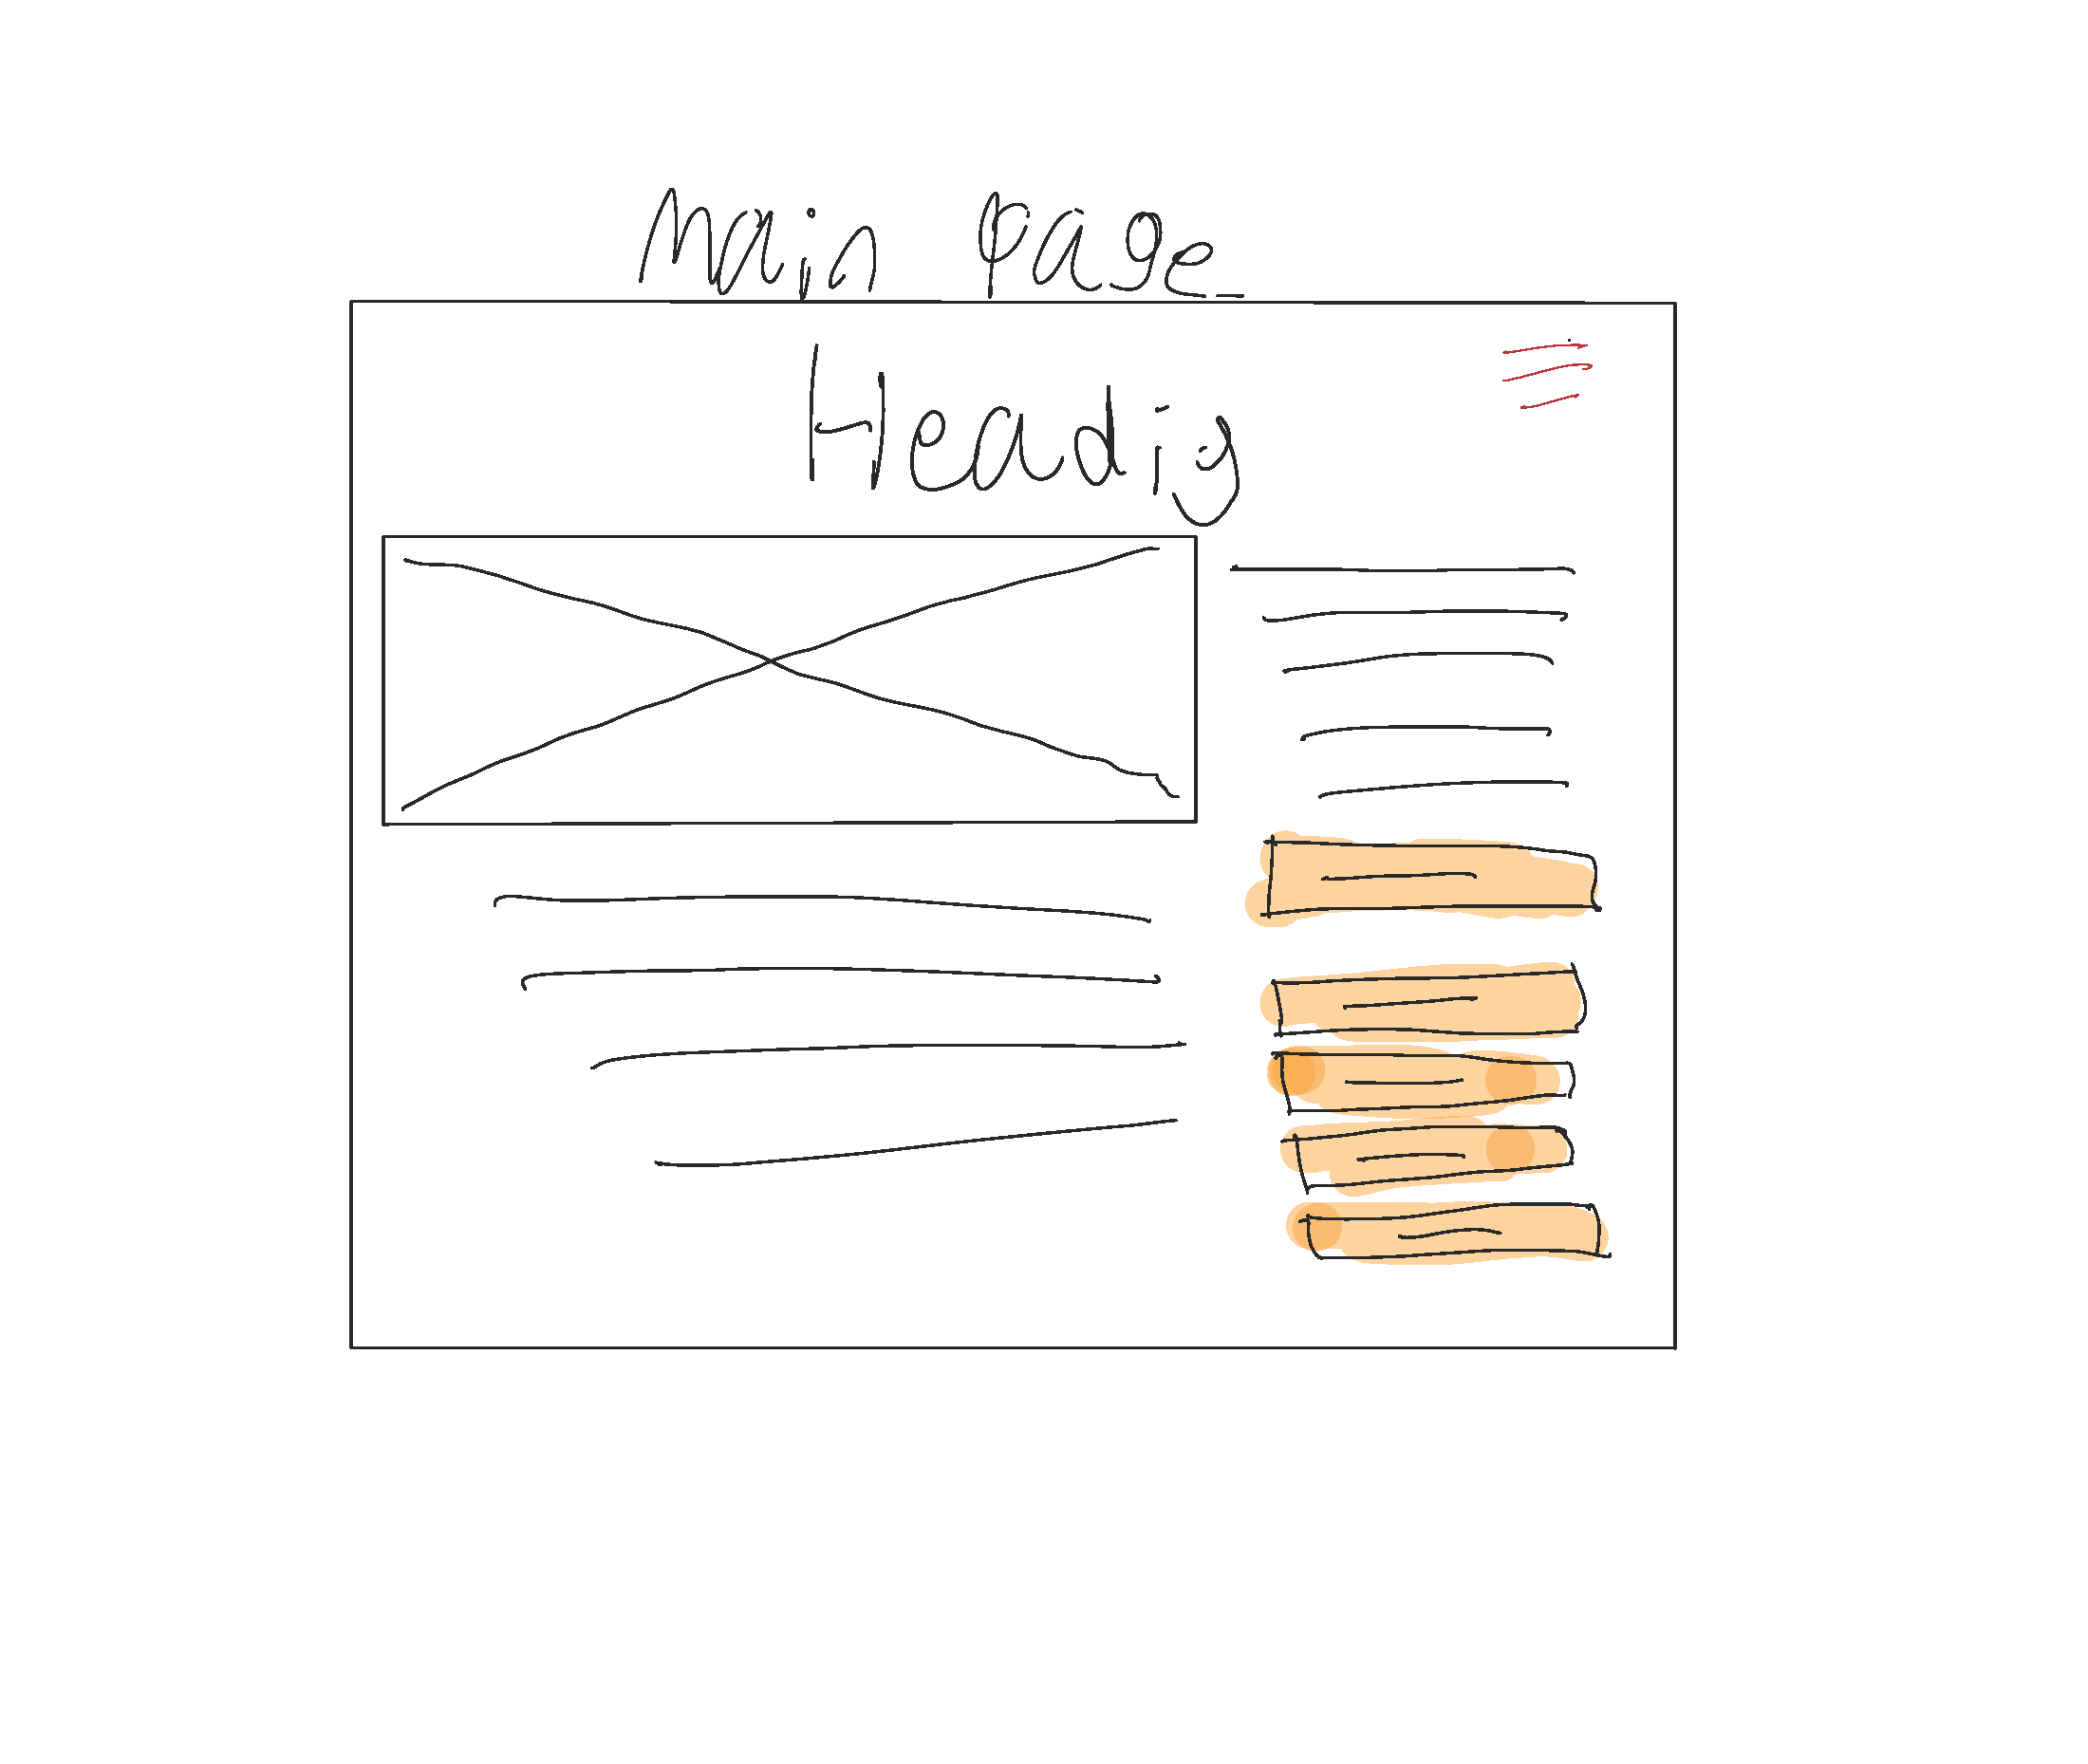 Main page
Headig